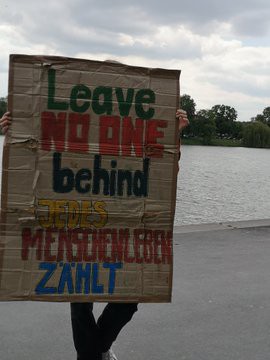 Leave
NO ONE
behind
JEDES
MENSCHENLEBEN
ZÄHLT